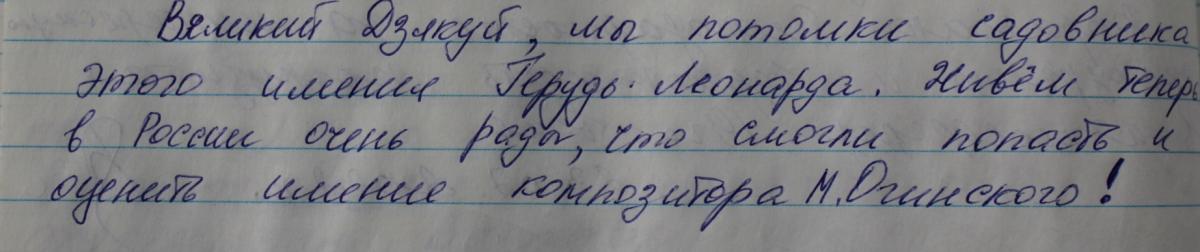 Вяликий Дзякуй, мы потомки садовника
этого имения Герудь Леонарда. Живём теперь
в России очень рады, что смогли попасть и
оценить имение композитора М. Огинского!